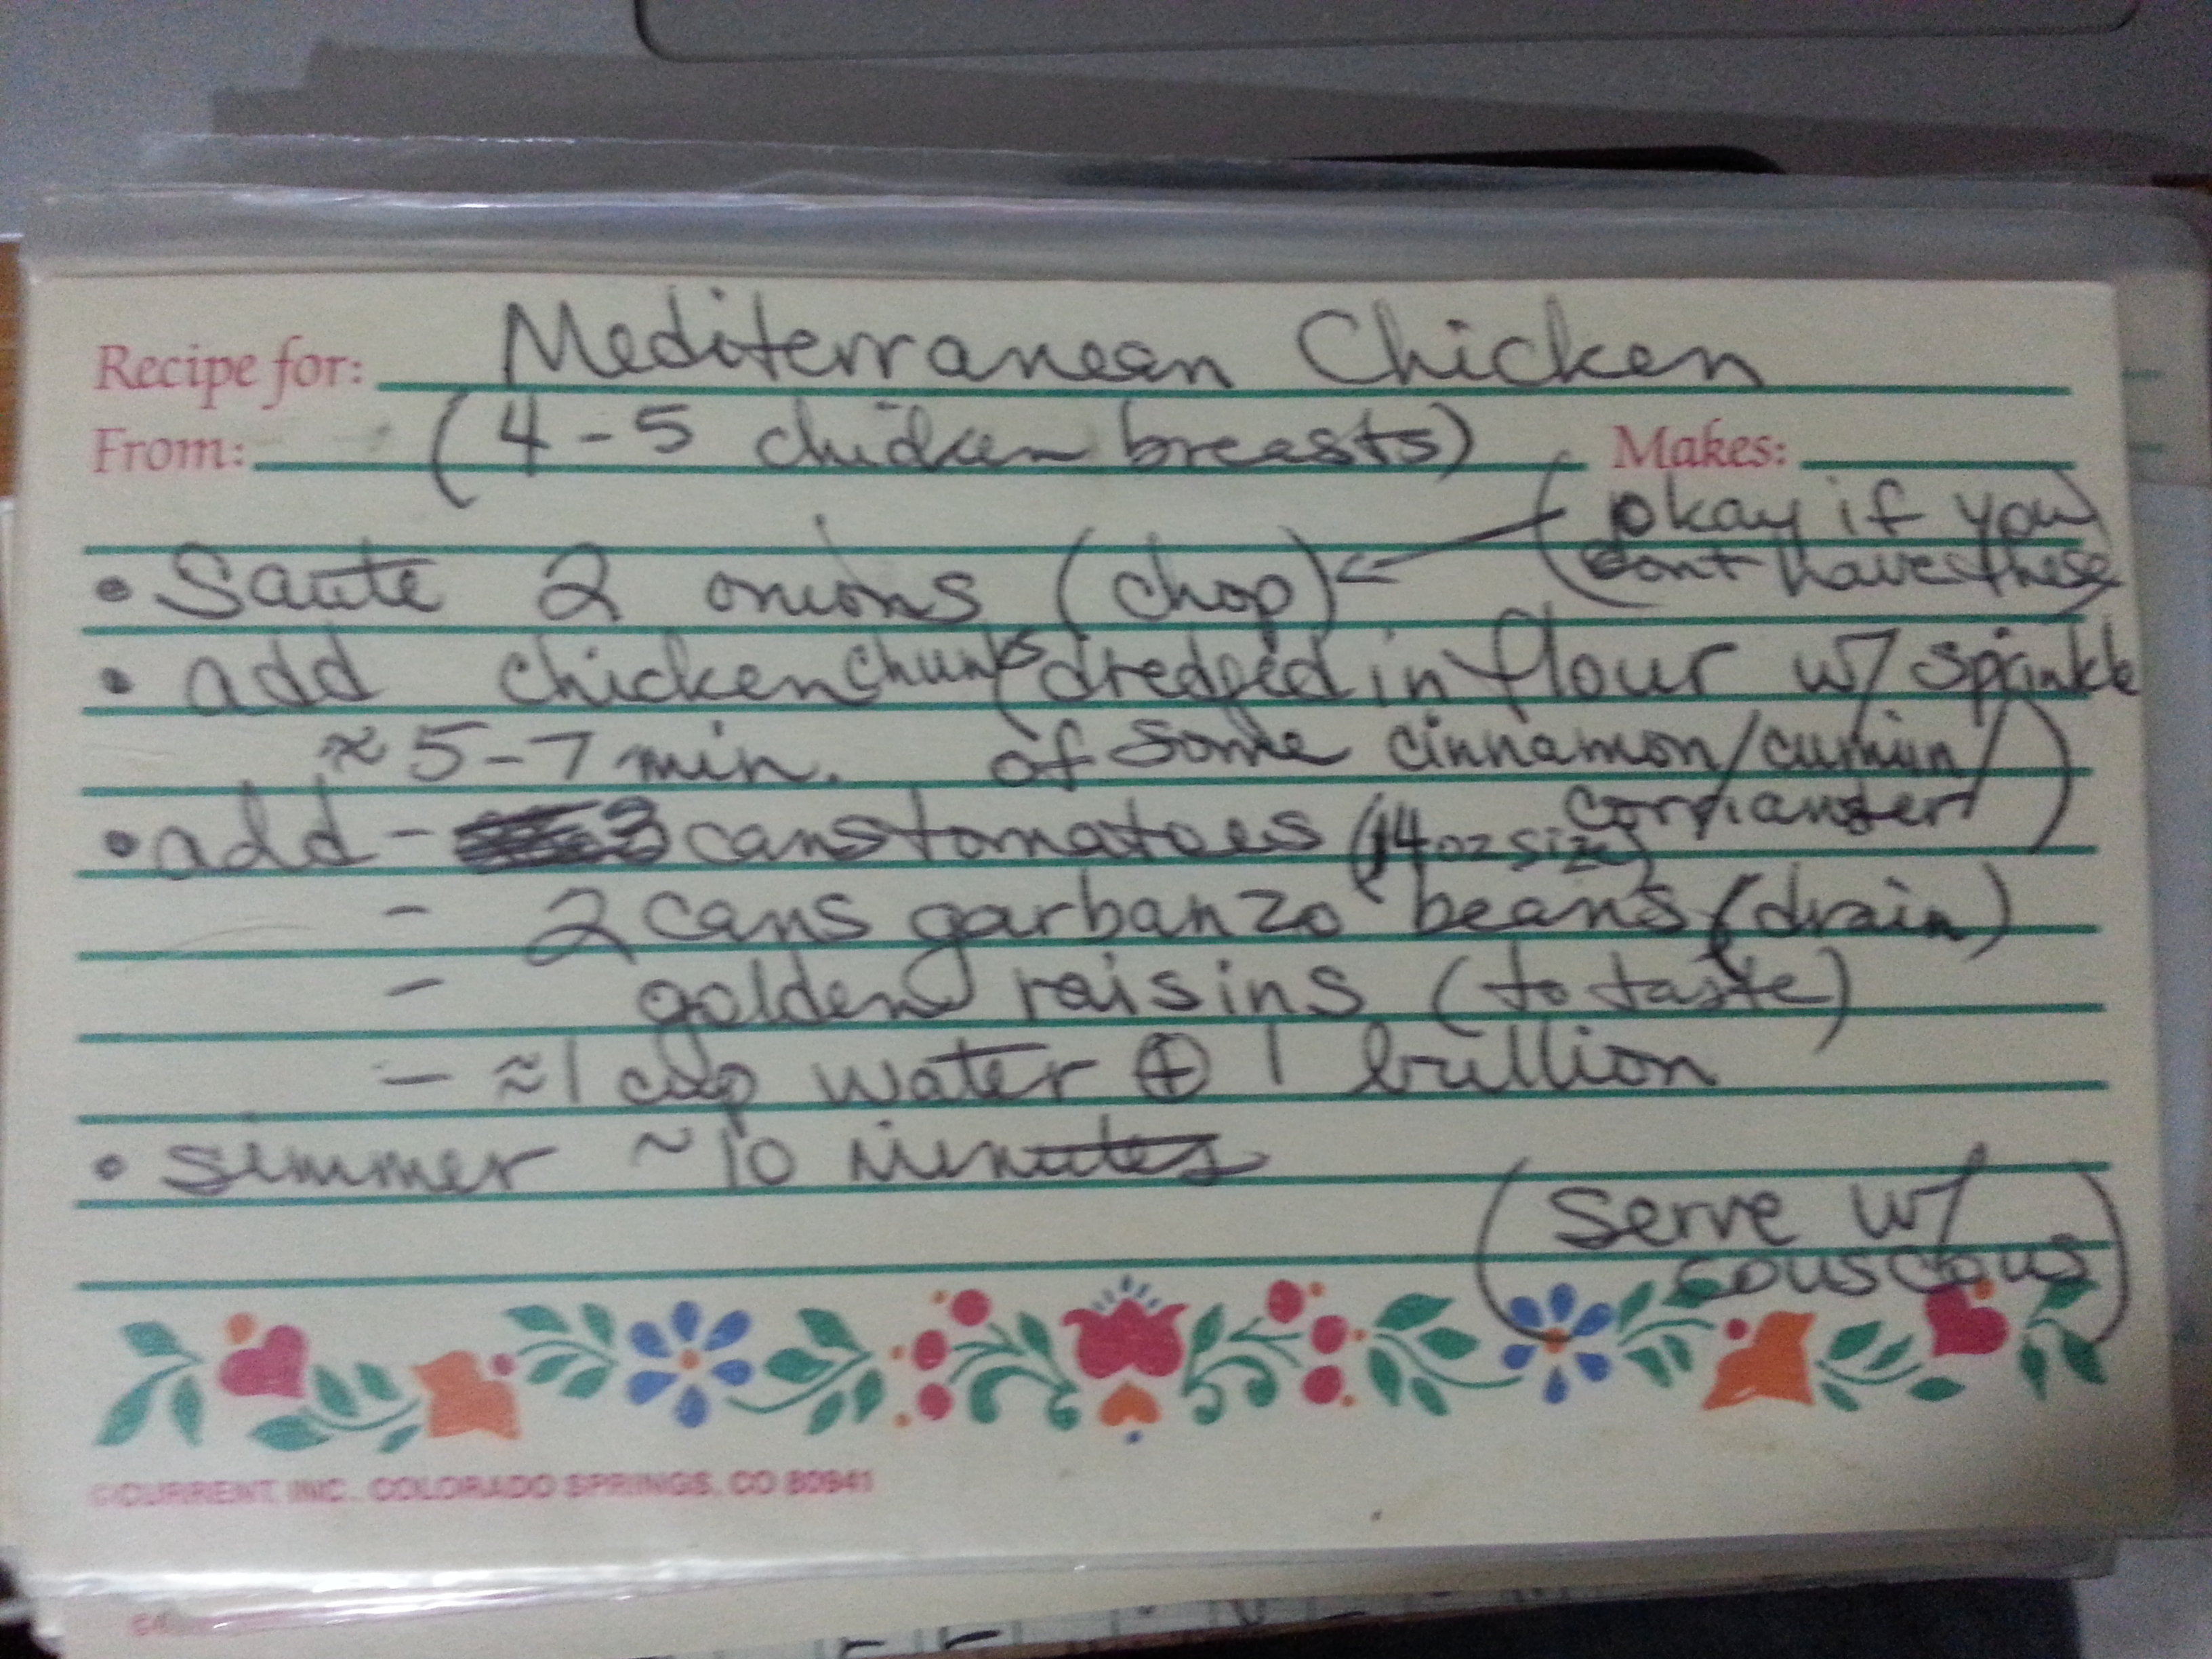 Recipe for: Mediterranean Chicken
From: (4-5 chicken breasts) Makes:
(okay if you
don't have these)
• Saute 2 onions (chop) ←
• add chicken chunks (dredged in flour w/ sprinkle
≈ 5-7 min. of some cinnamon/cumin/
corriander)
• add - 3 cans tomatoes (14 oz size)
- 2 cans garbanzo beans (drain)
- golden raisins (to taste)
- ≈1 cup water ⊕ 1 brillion
• simmer ~10 minutes
(Serve w/
couscous)
©CURRENT, INC., COLORADO SPRINGS, CO 80941